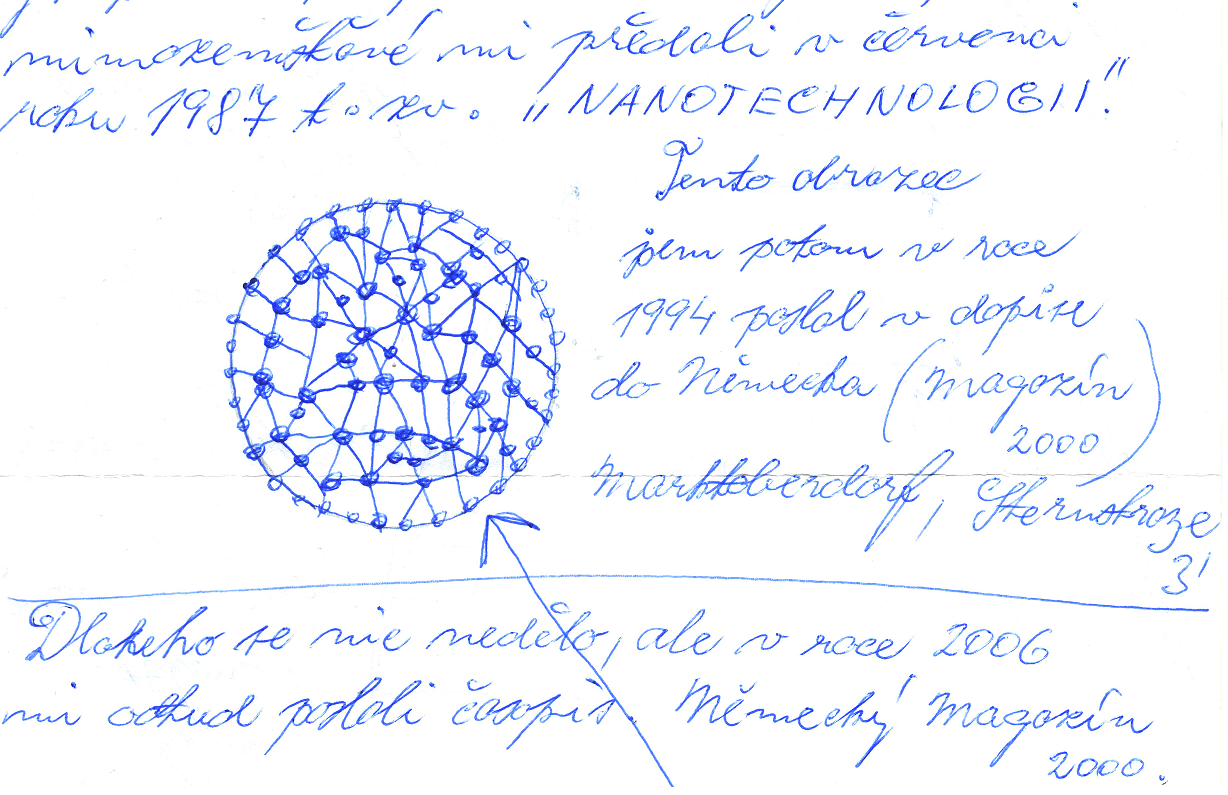 mimozemšťťové mi předali v červenci
roku 1987 t.zv. „NANOTECHNOLOGII“.
Tento obrazec
jsem potom v roce
1994 poslal v dopise
do Německa (Magazín
2000)
Marktoberdorf, Sternstraze
3!
Dlouho se nic nedělo, ale v roce 2006
mi odtud poslali časopis. Německý Magazín
2000.